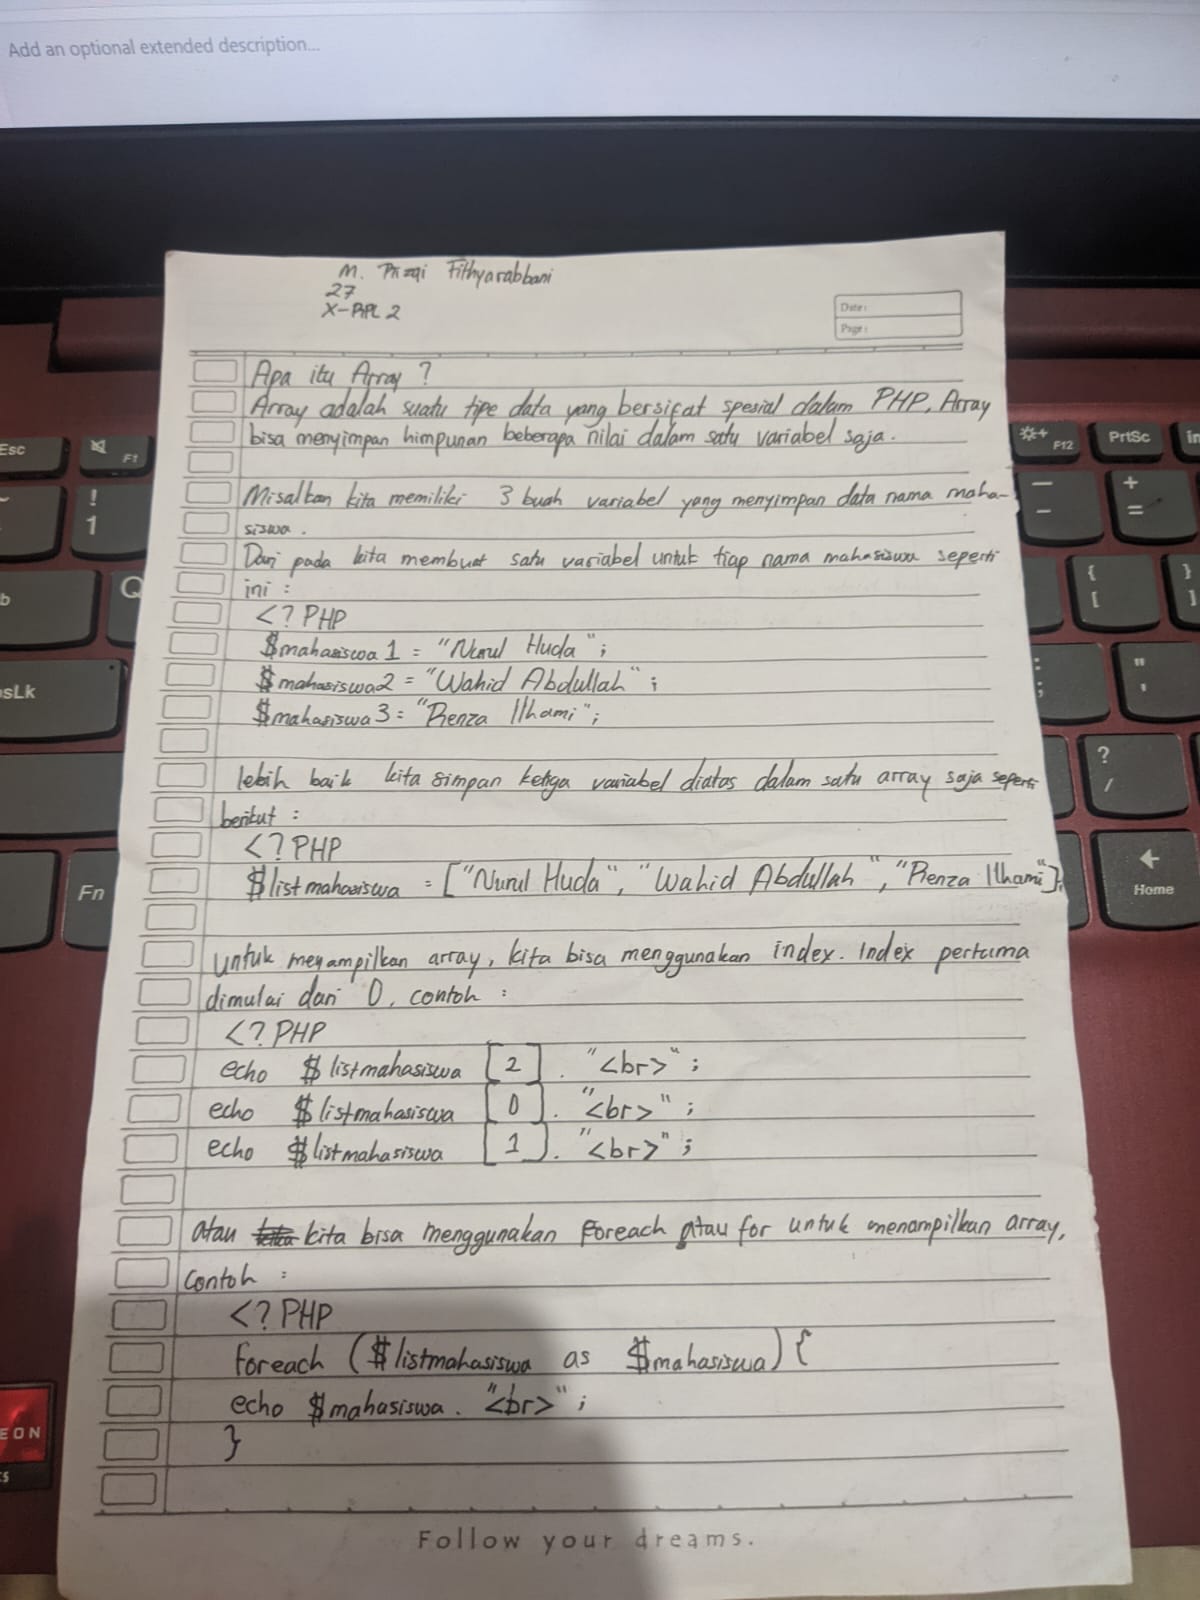 Add an optional extended description...
M. Rizqi Fithyarabbani
27
X-RPL 2
Date:
Page:
Apa itu Array ?
Array adalah suatu tipe data yang bersifat spesial dalam PHP. Array
bisa menyimpan himpunan beberapa nilai dalam satu variabel saja.
Misalkan kita memiliki 3 buah variabel yang menyimpan data nama maha-
siswa.
Dari pada kita membuat satu variabel untuk tiap nama mahasiswa seperti
ini :
<?PHP
$mahasiswa 1 = "Nurul Huda";
$mahasiswa2 = "Wahid Abdullah";
$mahasiswa 3 = "Renza Ilhami";
lebih baik kita simpan ketiga variabel diatas dalam satu array saja seperti
berikut :
<?PHP
$listmahasiswa = ["Nurul Huda", "Wahid Abdullah", "Renza Ilhami"];
untuk menampilkan array, kita bisa menggunakan index. Index pertama
dimulai dari 0, contoh :
<?PHP
echo $listmahasiswa [2] . "<br>";
echo $listmahasiswa [0] . "<br>";
echo $listmahasiswa [1] . "<br>";
atau kita bisa menggunakan foreach atau for untuk menampilkan array,
contoh :
<?PHP
foreach ($listmahasiswa as $mahasiswa) {
echo $mahasiswa . "<br>";
}
Follow your dreams.
Esc
F1
!
1
Q
Fn
F12
PrtSc
+
=
{
[
}
]
?
/
Home